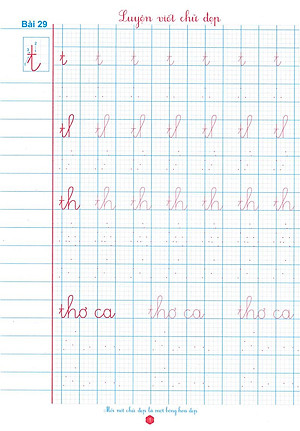 Luyện viết chữ đẹp
Bài 29
t
t t t t t t t
tl tl tl tl tl tl tl
th th th th th th th
thơ ca thơ ca thơ ca
Mỗi nét chữ đẹp là một bông hoa đẹp